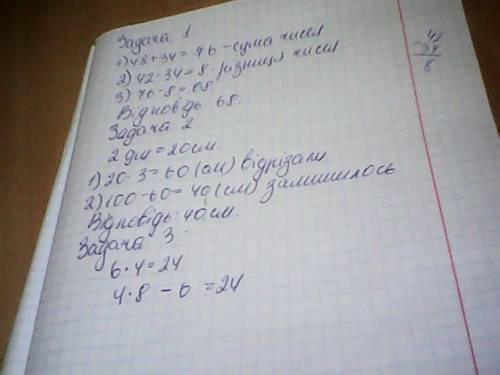 Задача 1.
1) 42+34=76 - сума чисел
2) 42-34=8 - різниця чисел
3) 76-8=68
Відповідь 68.
Задача 2.
2 дм = 20 см.
1) 20·3=60 (см) відрізали
2) 100-60=40 (см) залишилось
Відповідь: 40 см.
Задача 3.
6·4=24
4·8-6=24
42
-34
8